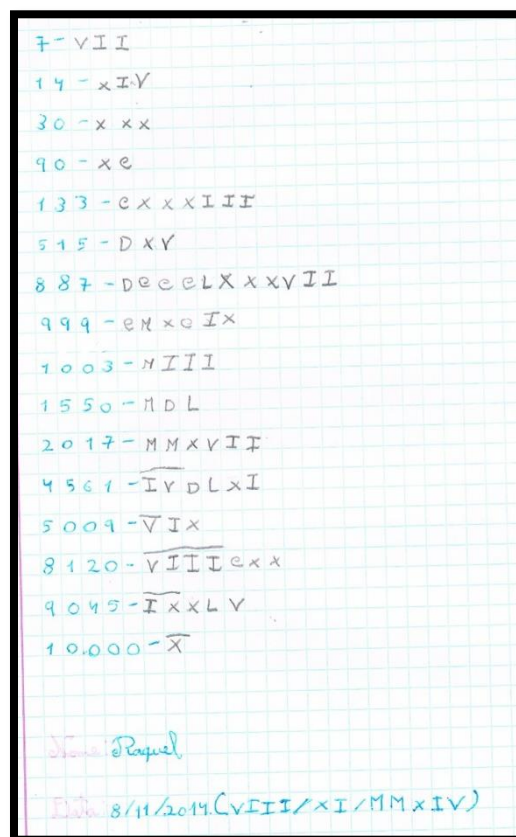 7-VII
14-XIV
30-XXX
90-XC
133-CXXXIII
515-DXV
887-DCCCLXXXVII
999-CMXCIX
1003-MIII
1550-MDL
2017-MMXVII
4561-I̅V̅DLXI
5009-V̅IX
8120-V̅I̅I̅I̅CXX
9045-I̅X̅XLV
10.000-X̅
Nome: Raquel
8/11/2014.(VIII/XI/MMXIV)